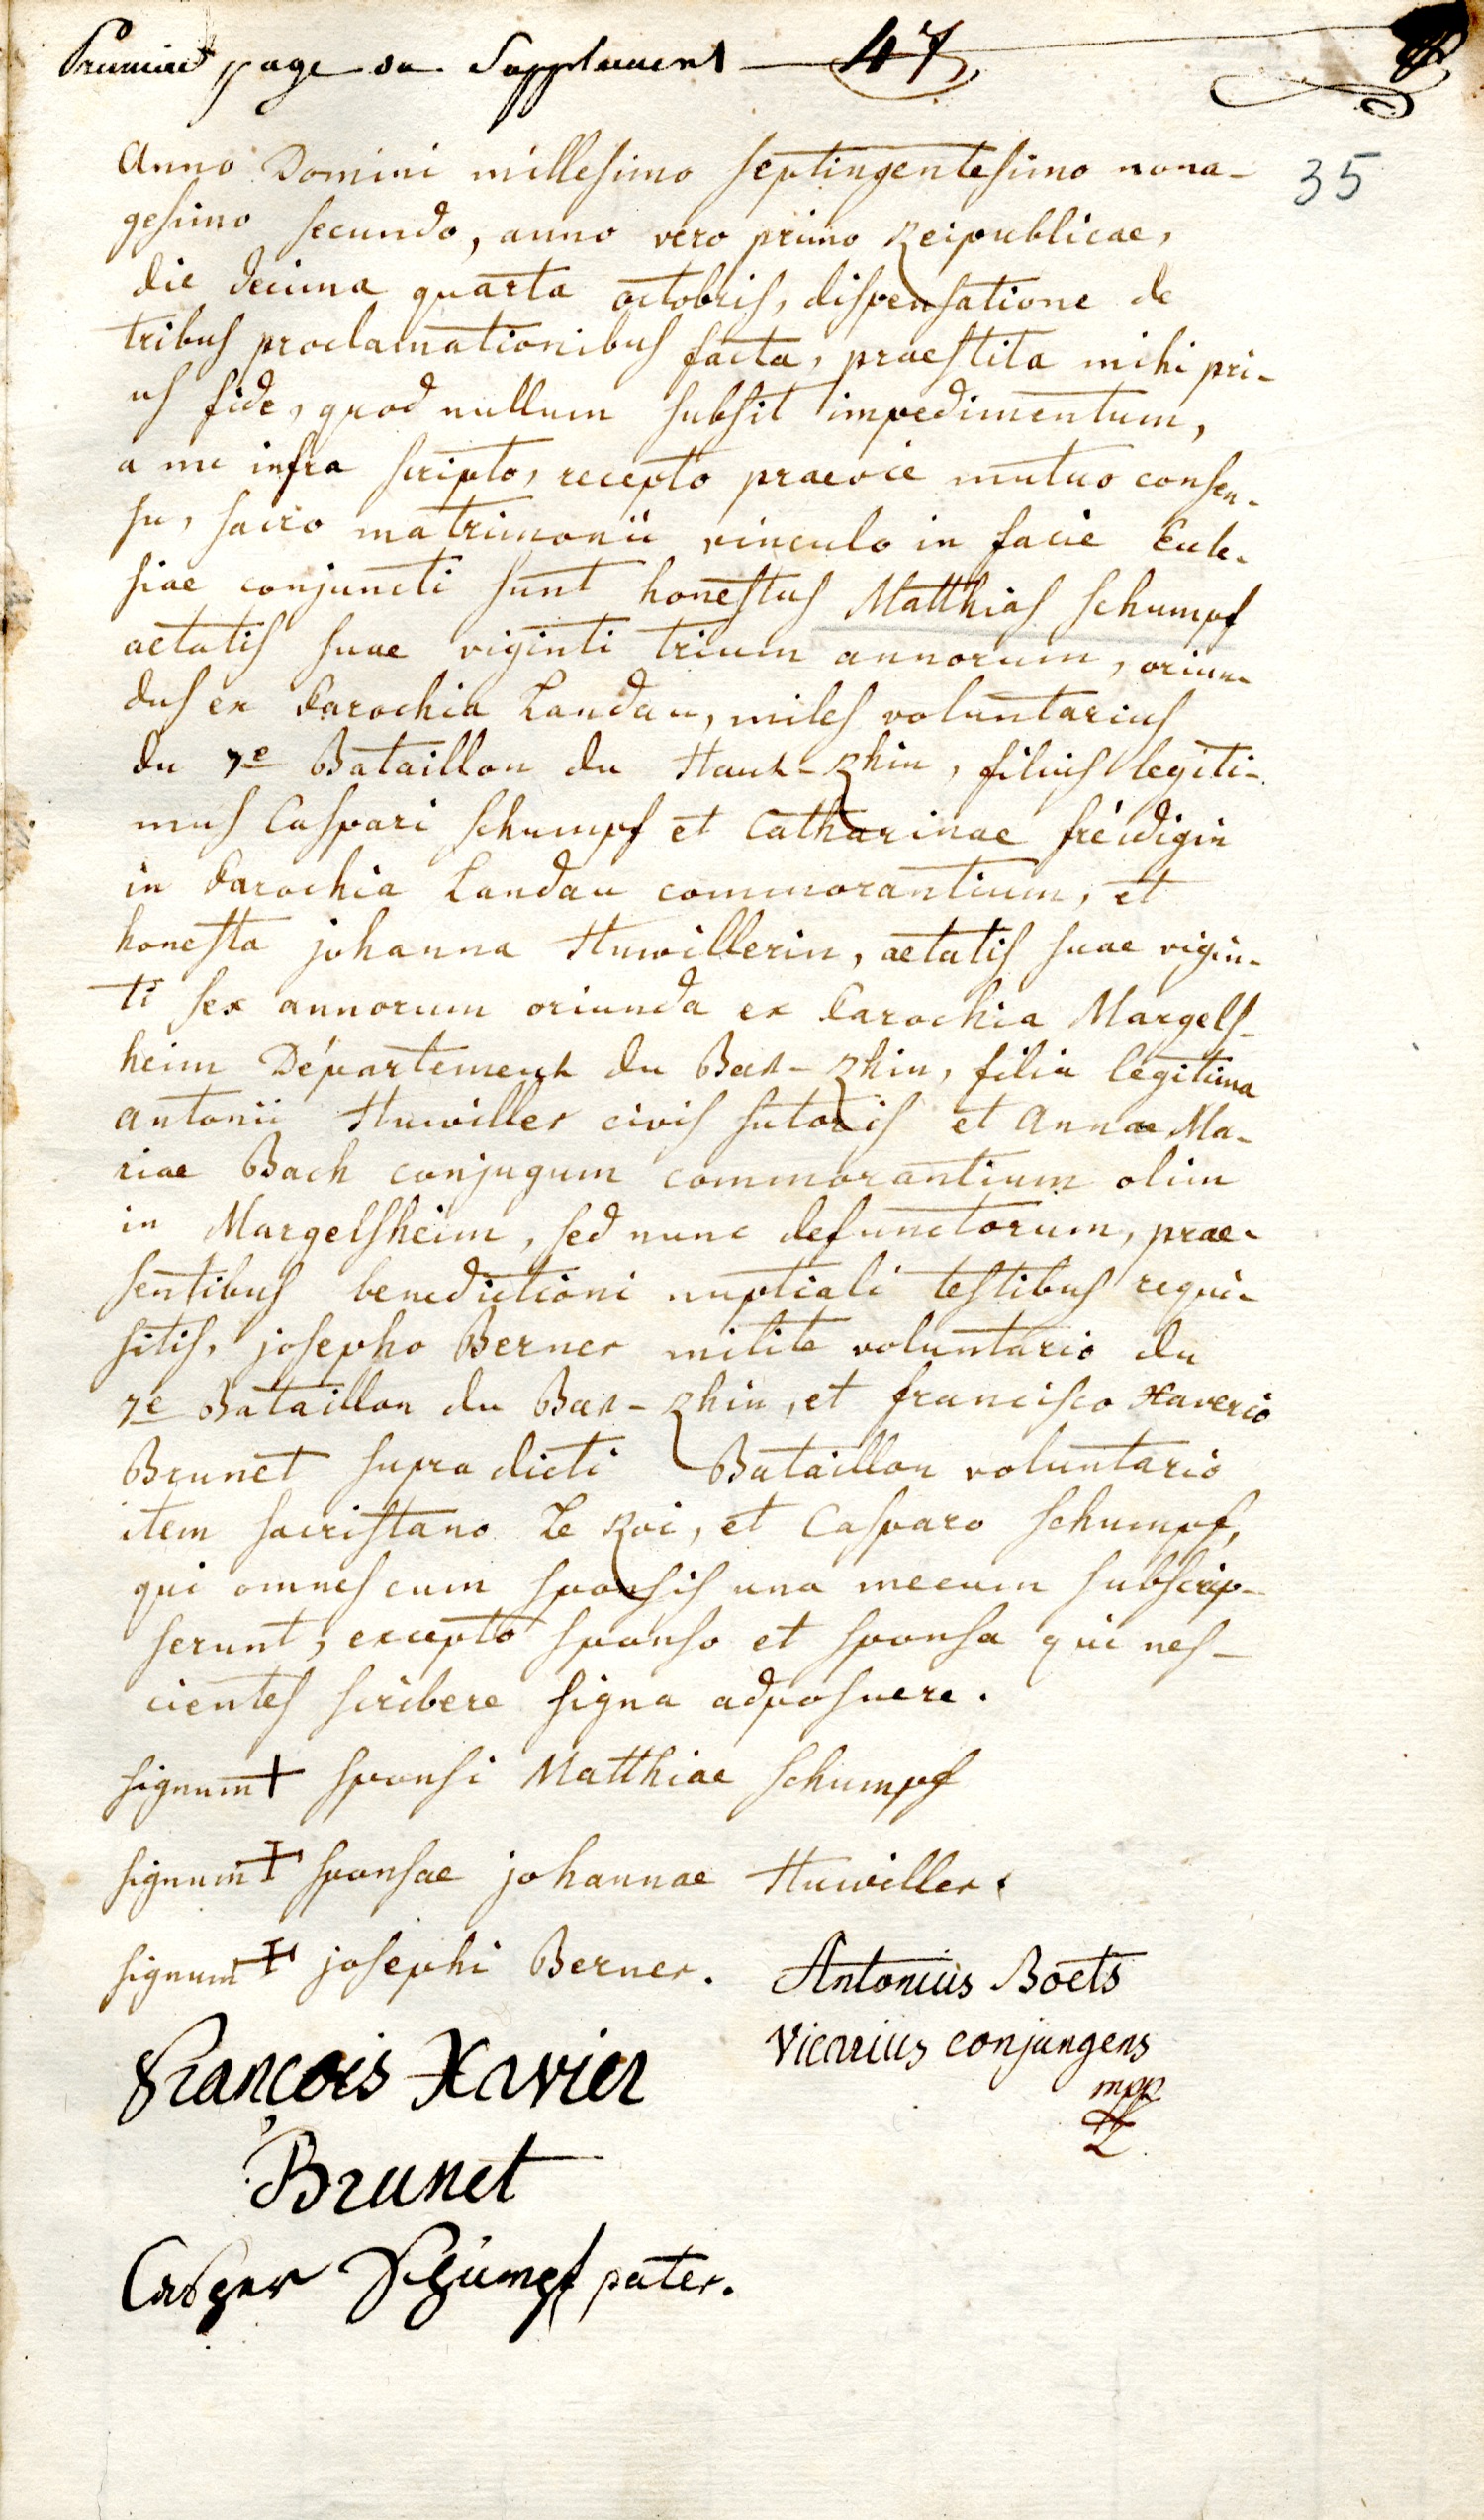 Premiere page du Supplement 47
35
Anno Domini millesimo septingentesimo nona-
gesimo secundo, anno vero primo Reipublicae,
die decima quarta octobris, dispensatione de
tribus proclamationibus facta, praestita mihi pri-
us fide, quod nullum subsit impedimentum,
a me infra scripto, recepto praevie mutuo consen-
su, sacro matrimonii vinculo in facie Eccle-
siae conjuncti sunt honestus Matthias Schumpf
aetatis suae viginti trium annorum, oriun-
dus ex Parochia Landau, miles voluntarius
du 7e Bataillon du Haut-Rhin, filius legiti-
mus Caspari Schumpf et Catharinae
in Parochia Landau commorantium, et
honesta johanna Huwillerin, aetatis suae vigin-
ti sex annorum oriunda ex Parochia Margels-
heim Département du Bas-Rhin, filia legitima
antonii Huwiller civis sutoris et Annae Ma-
riae Bach conjugum commorantium olim
in Margelsheim, sed nunc defunctorum, prae-
sentibus benedictioni nuptiali testibus requi-
sitis, josepho Berner milite voluntario du
7e Bataillon du Bas-Rhin, et francisco Xaverio
Brunet supra dicti Bataillon voluntario
item sacristano Le Roi, et Casparo Schumpf,
qui omnes cum sponsis una mecum subscrip-
serunt, excepto sponso et sponsa qui nes-
cientes scribere signa adposuere.
signum + sponsi Matthiae Schumpf
signum + sponsae johannae Huwiller.
signum + josephi Berner.
Antonius Boets
Vicarius conjungens
mpp
François Xavier
Brunet
Casper Schumpf pater.